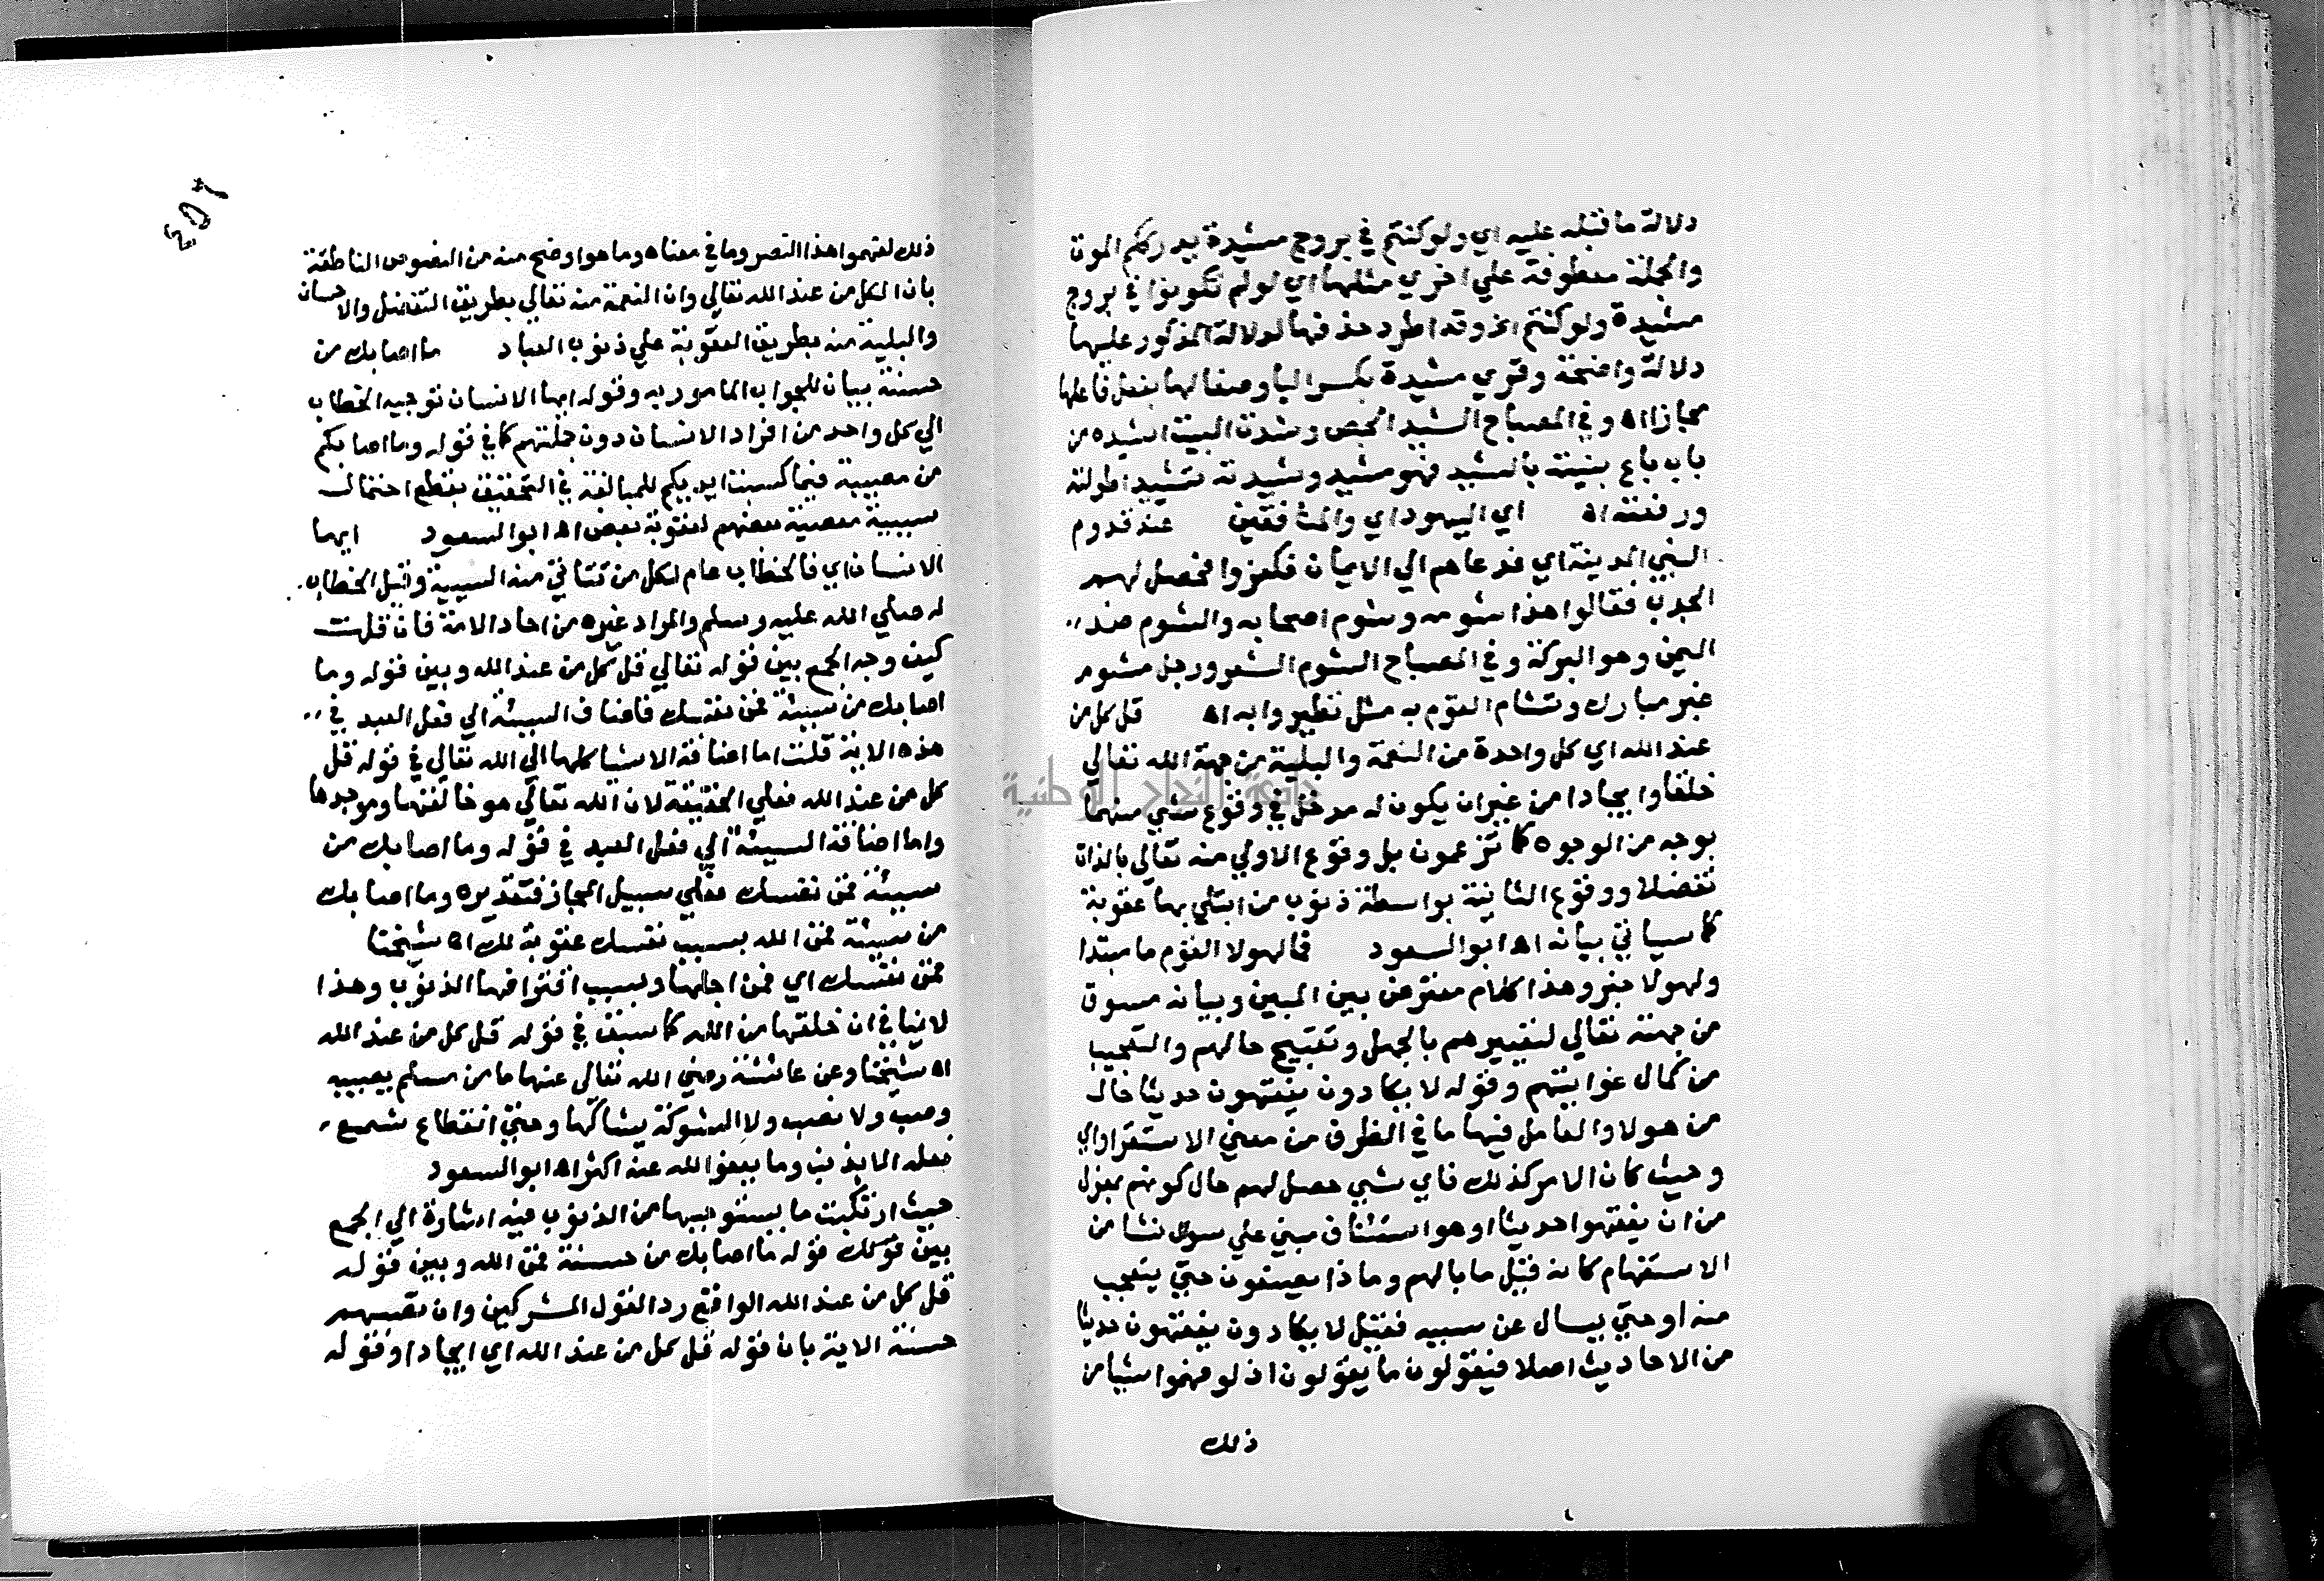 دلالة ما قبله عليه اي ولو كنتم في بروج مشيدة يدرككم الموت
والجملة معطوفة علي اخري مثلها اي لو لم تكونوا في بروج
مشيدة ولو كنتم الخ وقد اطرد حذفها لدلالة المذكور عليها
دلالة واضحة وقري مشيدة بكسر اليا وصفا لها بفعل فاعلها
مجازا اه وفي المصباح الشيد الجص وشدت البيت اشيده من
باب باع بنيته بالشيد فهو مشيد وشيدته تشييدا طولته
ورفعته اه اي اليهود اي والمنافقين عند قدوم
النبي المدينة اي فدعاهم الي الايمان فكفروا فحصل لهم
الجدب فقالوا هذا شومه وشوم اصحابه والشوم ضد
اليمن وهو البركة وفي المصباح الشوم الشر ورجل مشوم
غير مبارك وتشام القوم به مثل تطيروا به اه قل كل من
عند الله اي كل واحدة من النعمة والبلية من جهة الله تعالي
خلقا وايجادا من غير ان يكون له مدخل في وقوع شي منهما
بوجه من الوجوه كما تزعمون بل وقوع الاولي منه تعالي بالذات
تفضلا ووقوع الثانية بواسطة ذنوب من ابتلي بها عقوبة
كما سياتي بيانه اه ابو السعود فما لهولا القوم ما مبتدا
ولهولا خبر وهذا كلام معترض بين المبين وبيانه مسوق
من جهته تعالي لتعييرهم بالجهل وتقبيح حالهم والتعجيب
من كمال غوايتهم وقوله لا يكادون يفقهون حديثا حال
من هولا والعامل فيها ما في الظرف من معني الاستقرار اي
وحيث كان الامر كذلك فاي شي حصل لهم حال كونهم بمعزل
من ان يفقهوا حديثا او هو استئناف مبني علي سوال نشا من
الاستفهام كانه قيل ما بالهم وماذا يصنعون حتي يتعجب
منه او حتي يسال عن سببه فقيل لا يكادون يفقهون حديثا
من الاحاديث اصلا فيقولون ما يقولون اذ لو فهموا شيا من
ذلك
ذلك لفهموا هذا النص وما في معناه وما هو اوضح منه من النصوص الناطقة
بان الكل من عند الله تعالي وان النعمة منه تعالي بطريق التفضل والاحسان
والبلية منه بطريق العقوبة علي ذنوب العباد ما اصابك من
حسنة بيان للجواب المامور به وقوله ايها الانسان توجيه الخطاب
الي كل واحد من افراد الانسان دون جملتهم كما في قوله وما اصابكم
من مصيبة فبما كسبت ايديكم للمبالغة في التحقيق بقطع احتمال
سببية معصية بعضهم لعقوبة بعض اه ابو السعود ايها
الانسان اي فالخطاب عام لكل من تتاتي منه السيئة وقيل الخطاب
له صلي الله عليه وسلم والمراد غيره من احاد الامة فان قلت
كيف وجه الجمع بين قوله تعالي قل كل من عند الله وبين قوله وما
اصابك من سيئة فمن نفسك فاضاف السيئة الي فعل العبد في
هذه الاية قلت اما اضافة الاشيا كلها الي الله تعالي في قوله قل
كل من عند الله فعلي الحقيقة لان الله تعالي هو خالقها وموجدها
واما اضافة السيئة الي فعل العبد في قوله وما اصابك من
سيئة فمن نفسك فعلي سبيل المجاز فتقديره وما اصابك
من سيئة فمن الله بسبب نفسك عقوبة لك اه شيخنا
فمن نفسك اي فمن اجلها وبسبب اقترافها الذنوب وهذا
لا ينافي ان خلقها من الله كما سبق في قوله قل كل من عند الله
اه شيخنا وعن عائشة رضي الله تعالي عنها ما من مسلم يصيبه
وصب ولا نصب ولا الشوكة يشاكها وحتي انقطاع شسع
نعله الا بذنب وما يعفو الله عنه اكثر اه ابو السعود
حيث ارتكبت ما يستوجبها من الذنوب فيه اشارة الي الجمع
بين قولك قوله ما اصابك من حسنة فمن الله وبين قوله
قل كل من عند الله الواقع رد القول المشركين وان تصبهم
حسنة الاية بان قوله قل كل من عند الله اي ايجادا وقوله
جامعة النجاح الوطنية